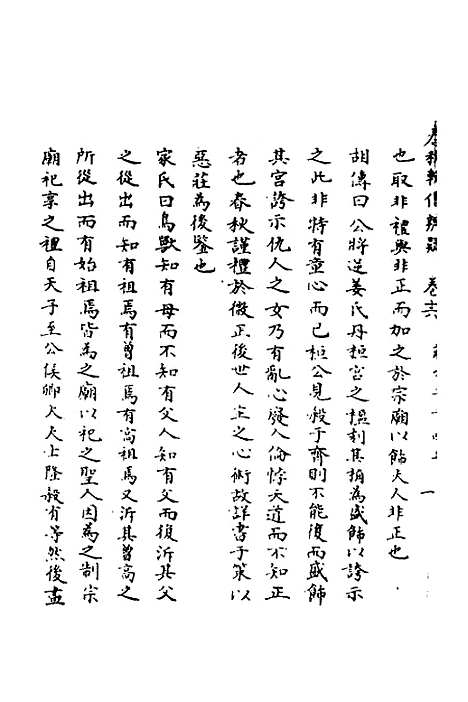 春秋輯傳辨疑 卷二十六
也取非禮與非正而加之於宗廟以飾夫人非正也
胡傳曰公將逆姜氏丹桓宮之楹刻其桷為盛飾以誇示
之此非特有童心而已桓公見殺于齊則不能復而盛飾
其宮誇示仇人之女乃有亂心廢人倫悖天道而不知正
者也春秋謹禮於微正後世人主之心術故詳書于策以
惡莊為後鑒也
家氏曰鳥獸知有母而不知有父人知有父而復泝其父
之從出而知有祖焉有曾祖焉有高祖焉又泝其曾高之
所從出而有始祖焉皆為之廟以祀之聖人因為之制宗
廟祀享之禮自天子至公侯卿大夫士隆殺有等然後盡